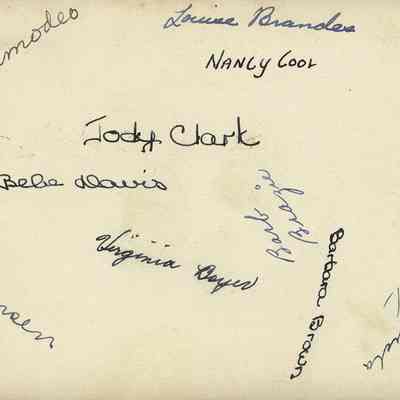 Louise Brandes
NANCY COOL
Jody Clark
Bebe Davis
Virginia Boyer
Barb
Barbara Brown